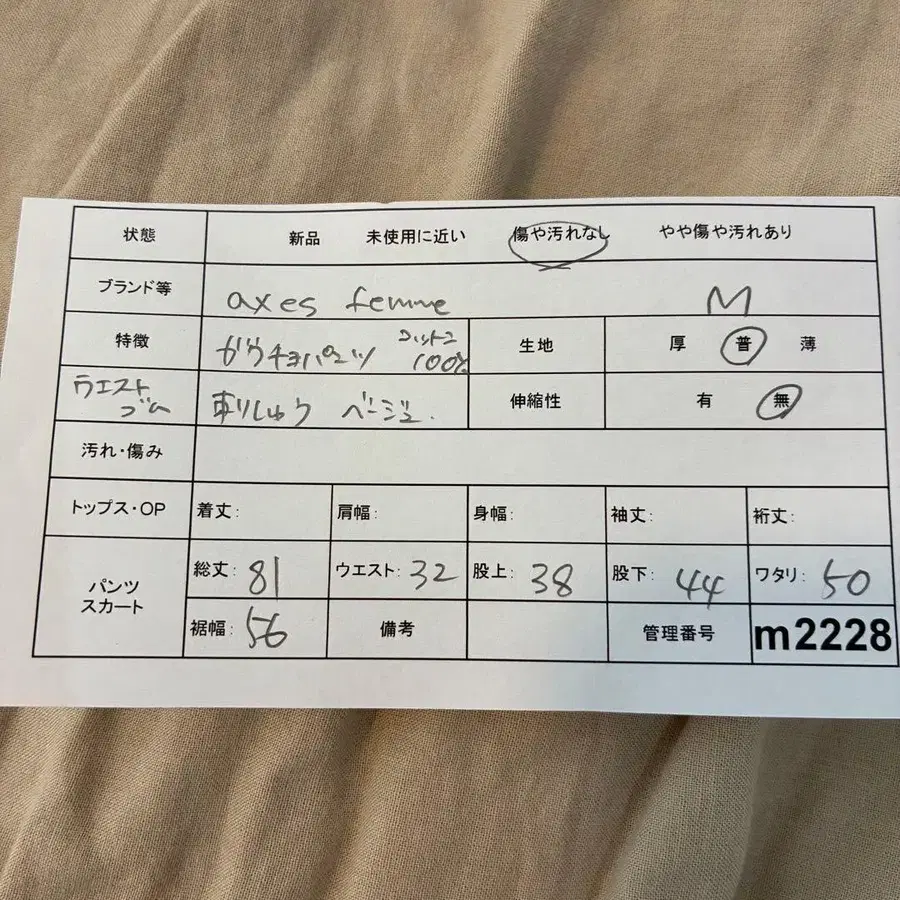 状態 新品 未使用に近い 傷や汚れなし やや傷や汚れあり
ブランド等 axes femme M
特徴 ガウチョパンツ コットン100% 生地 厚 普 薄
ウエストゴム 刺しゅう ベージュ. 伸縮性 有 無
汚れ・傷み
トップス・OP 着丈: 肩幅: 身幅: 袖丈: 裄丈:
パンツ スカート 総丈: 81 ウエスト: 32 股上: 38 股下: 44 ワタリ: 50
裾幅: 56 備考 管理番号 m2228